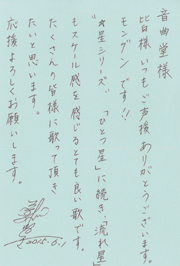 音曲堂様
皆様いつもご声援ありがとうございます。
モングンです!!
"木星シリーズ" 「ひとつ星」に続き「流れ星」
もスケール感を感じるとても良い歌です。
たくさんの皆様に歌って頂き
たいと思います。
応援よろしくお願いします。
2015.6.11